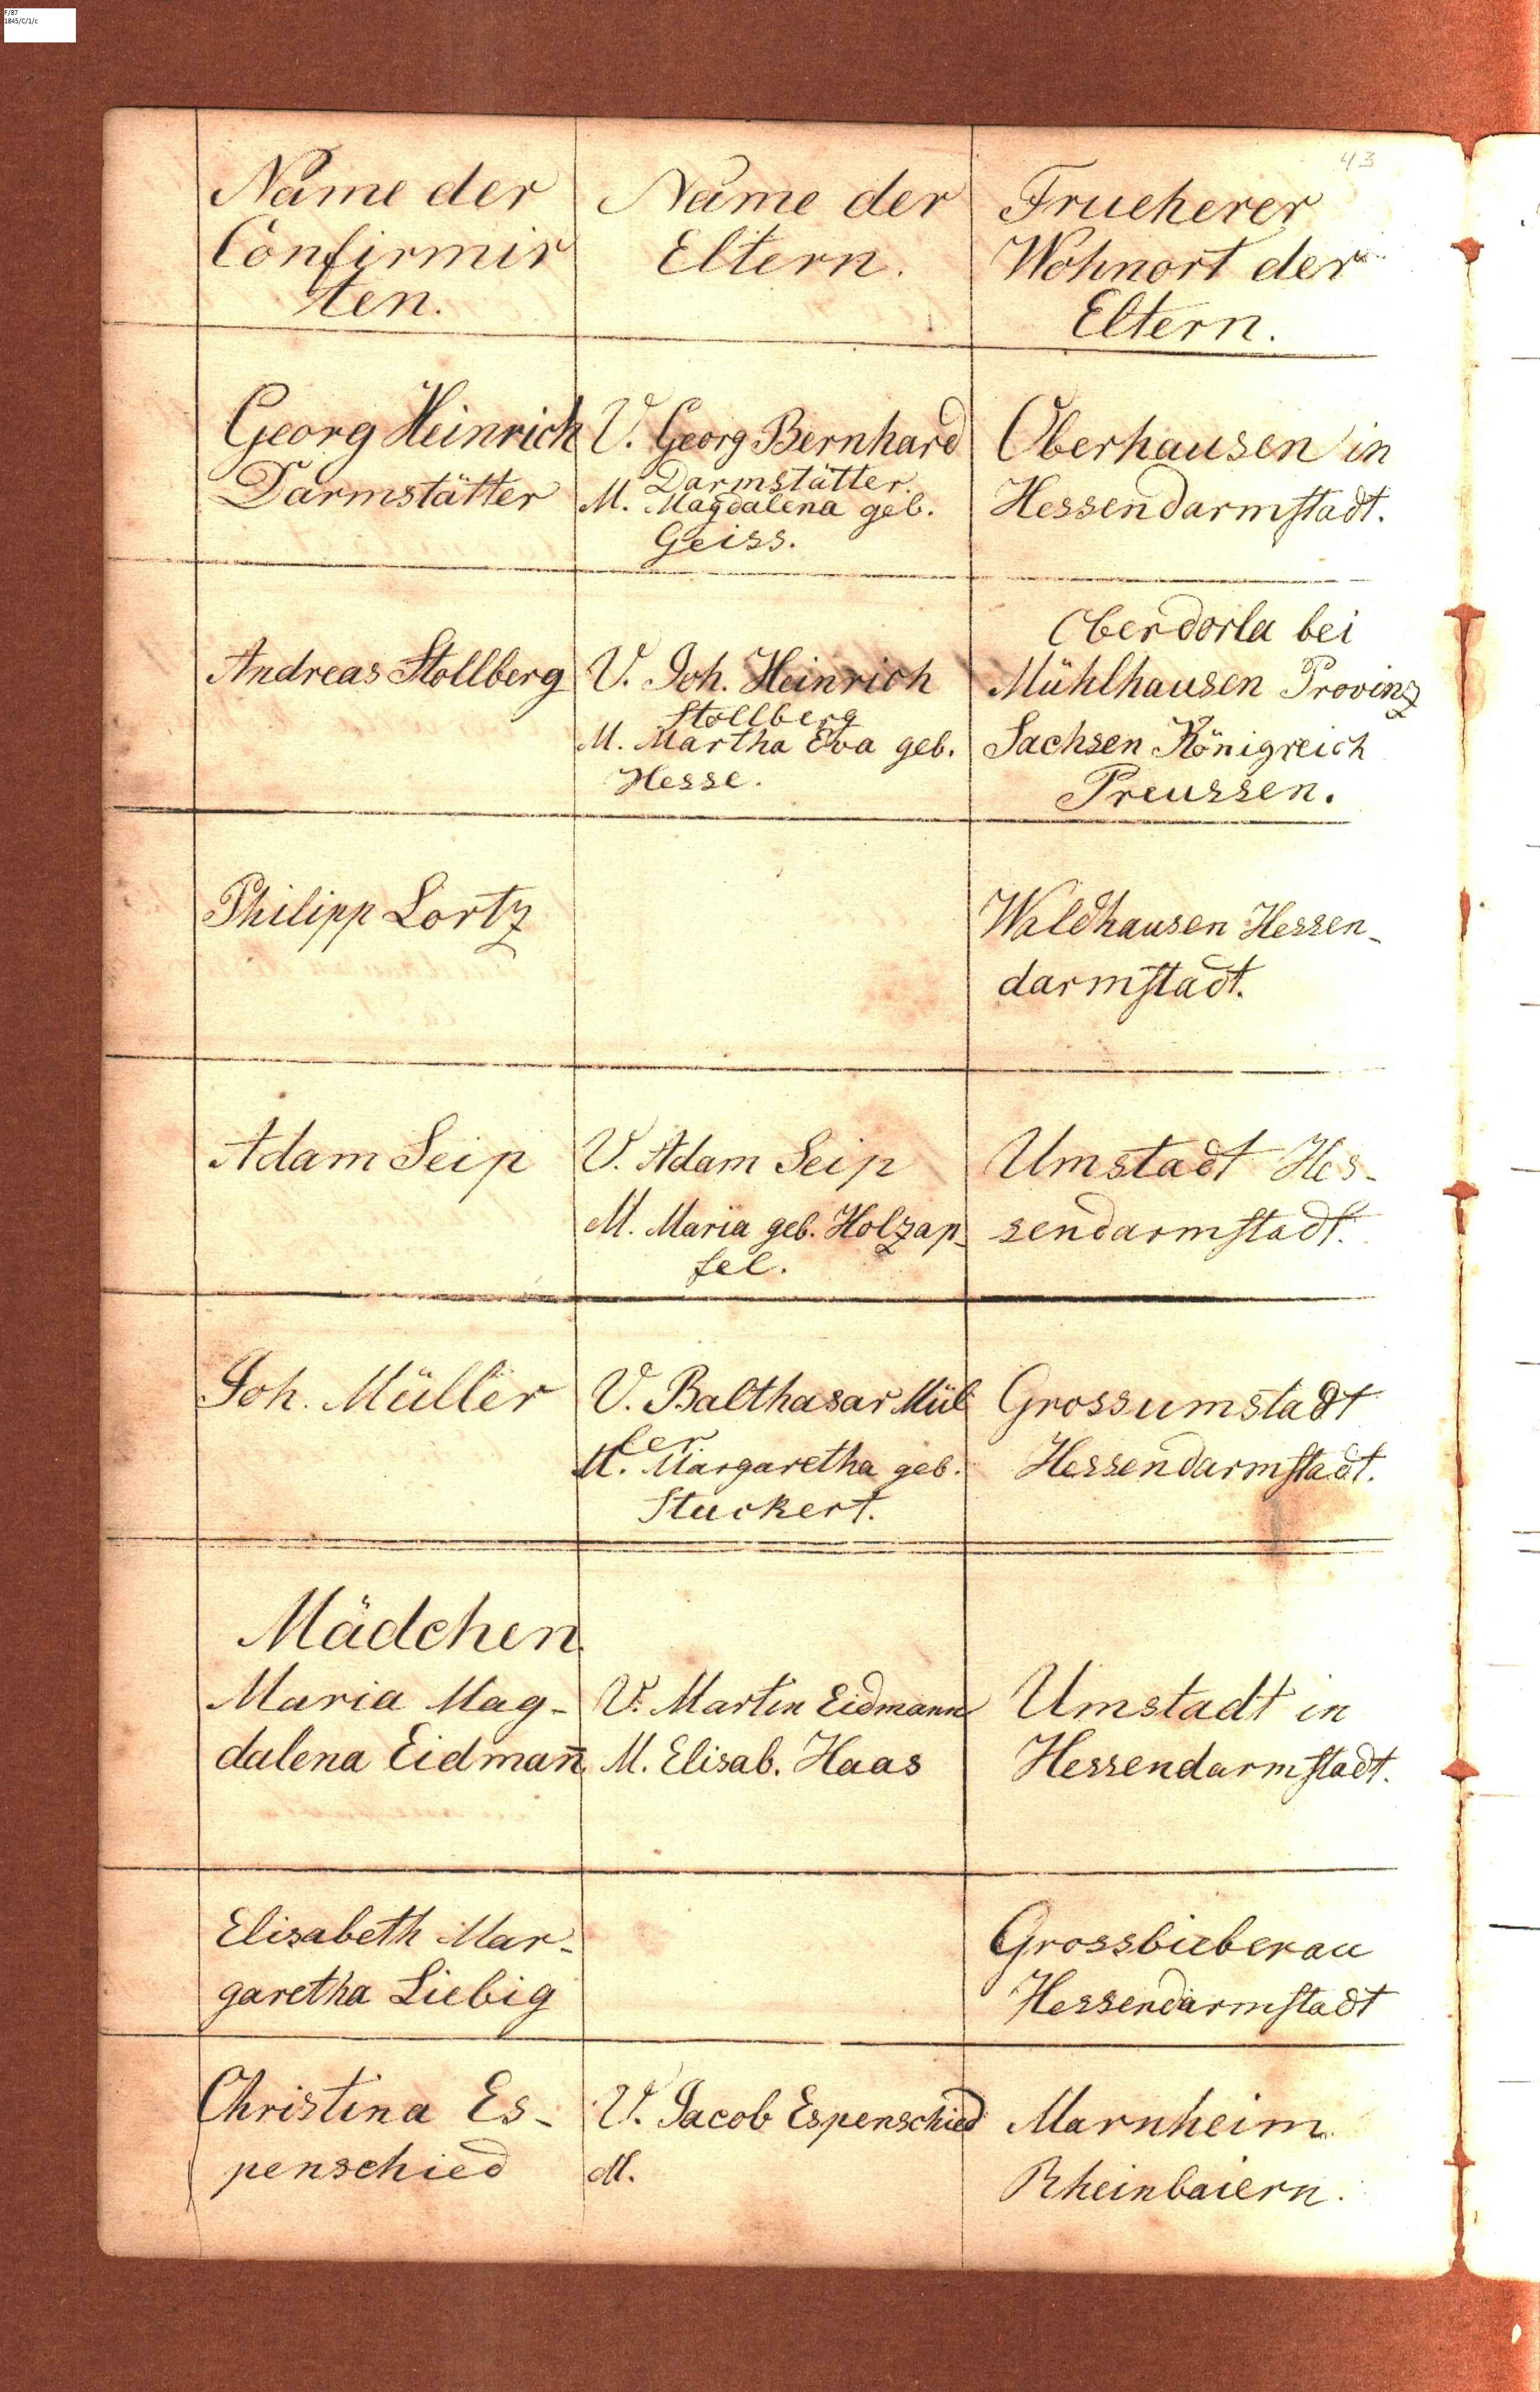 F/87
1845/C/1/c
43
Name der
Confirmir
ten.
Name der
Eltern.
Frueherer
Wohnort der
Eltern.
Georg Heinrich
Darmstätter
V. Georg Bernhard
Darmstätter.
M. Magdalena geb.
Geiss.
Oberhausen in
Hessendarmstadt.
Andreas Stollberg
V. Joh. Heinrich
Stollberg
M. Martha Eva geb.
Hesse.
Oberdorla bei
Mühlhausen Provinz
Sachsen Königreich
Preussen.
Philipp Lortz
Waldhausen Hessen-
darmstadt.
Adam Seip
V. Adam Seip
M. Maria geb. Holzap-
fel.
Umstadt Hes-
sendarmstadt.
Joh. Müller
V. Balthasar Mül
ler
M. Margaretha geb.
Stuckert.
Grossumstadt
Hessendarmstadt.
Mädchen
Maria Mag-
dalena Eidman̄
V. Martin Eidmann
M. Elisab. Haas
Umstadt in
Hessendarmstadt.
Elisabeth Mar-
garetha Liebig
Grossbieberau
Hessendarmstadt
Christina Es-
penschied
V. Jacob Espenschied
M.
Marnheim
Rheinbaiern.